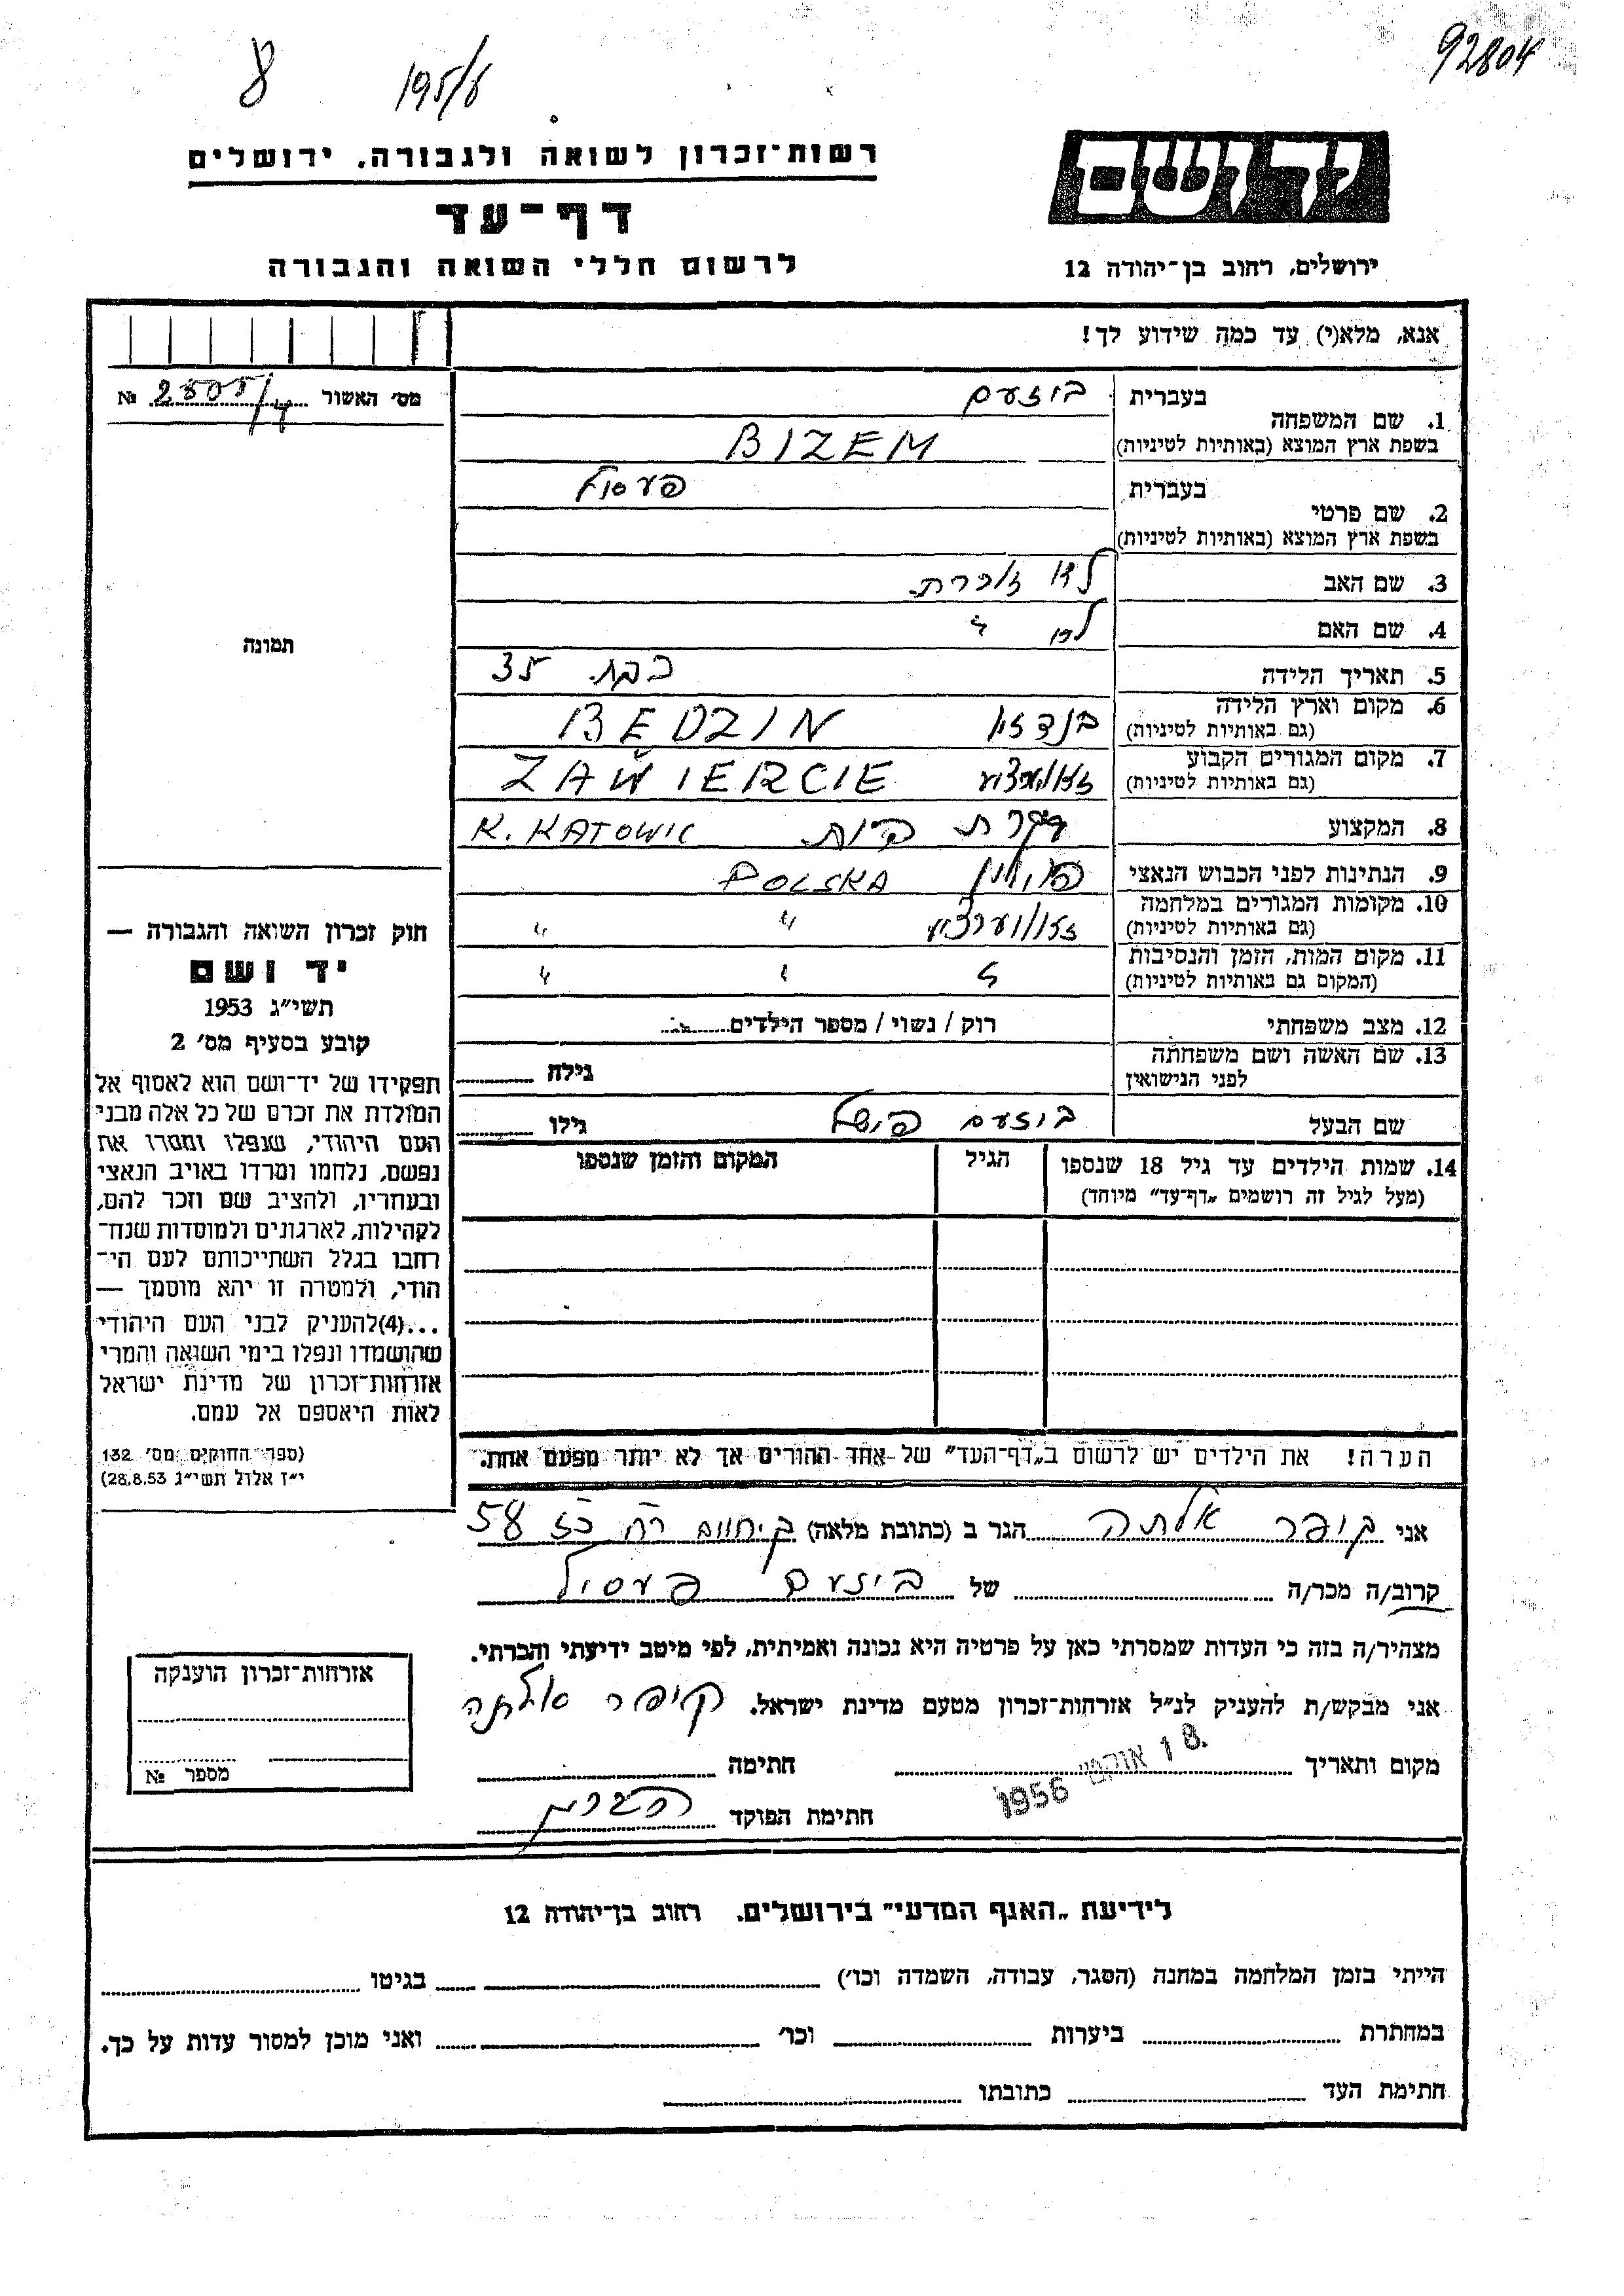 8 195/6 92804
רשות־זכרון לשואה ולגבורה, ירושלים
דף־עד
לרשום חללי השואה והגבורה
ירושלים, רחוב בן־יהודה 12
אנא, מלא(י) עד כמה שידוע לך!
מס׳ האשור №
1. שם המשפחה בעברית ביזעם
בשפת ארץ המוצא (באותיות לטיניות) BIZEM
2. שם פרטי בעברית פעסיל
בשפת ארץ המוצא (באותיות לטיניות)
3. שם האב לא זוכרת
4. שם האם לא "
5. תאריך הלידה כבת 35
6. מקום וארץ הלידה (גם באותיות לטיניות) בנדזין BEDZIN
7. מקום המגורים הקבוע (גם באותיות לטיניות) ZAWIERCIE
8. המקצוע עקרת בית K. KATOWIC
9. הנתינות לפני הכבוש הנאצי פולין POLSKA
10. מקומות המגורים במלחמה (גם באותיות לטיניות) " "
11. מקום המות, הזמן והנסיבות (המקום גם באותיות לטיניות) " " "
12. מצב משפחתי רוק / נשוי / מספר הילדים
13. שם האשה ושם משפחתה לפני הנישואין גילה
שם הבעל ביזעם פישל גילו
14. שמות הילדים עד גיל 18 שנספו הגיל המקום והזמן שנספו
(מעל לגיל זה רושמים „דף־עד״ מיוחד)
הערה! את הילדים יש לרשום ב„דף־העד״ של אחד ההורים אך לא יותר מפעם אחת.
תמונה
חוק זכרון השואה והגבורה —
יד ושם
תשי״ג 1953
קובע בסעיף מס׳ 2
תפקידו של יד־ושם הוא לאסוף אל
המולדת את זכרם של כל אלה מבני
העם היהודי, שנפלו ומסרו את
נפשם, נלחמו ומרדו באויב הנאצי
ובעוזריו, ולהציב שם וזכר להם,
לקהילות, לארגונים ולמוסדות שנח־
רבו בגלל השתייכותם לעם הי־
הודי, ולמטרה זו יהא מוסמך —
...(4) להעניק לבני העם היהודי
שהושמדו ונפלו בימי השואה והמרי
אזרחות־זכרון של מדינת ישראל
לאות היאספם אל עמם.
(ספר החוקים מס׳ 132
י״ז אלול תשי״ג 28.8.53)
אני קופר אלתה הגר ב (כתובת מלאה) 58
קרוב/ה מכר/ה של ביזעם פעסיל
מצהיר/ה בזה כי העדות שמסרתי כאן על פרטיה היא נכונה ואמיתית, לפי מיטב ידיעתי והכרתי.
אני מבקש/ת להעניק לנ״ל אזרחות־זכרון מטעם מדינת ישראל. קופר אלתה
מקום ותאריך 18. אוקט׳ 1956 חתימה
חתימת הפוקד
אזרחות־זכרון הוענקה
מספר №
לידיעת „האגף המדעי״ בירושלים, רחוב בן־יהודה 12
הייתי בזמן המלחמה במחנה (הסגר, עבודה, השמדה וכו׳) בגיטו
במחתרת ביערות וכר׳ ואני מוכן למסור עדות על כך.
חתימת העד כתובתו